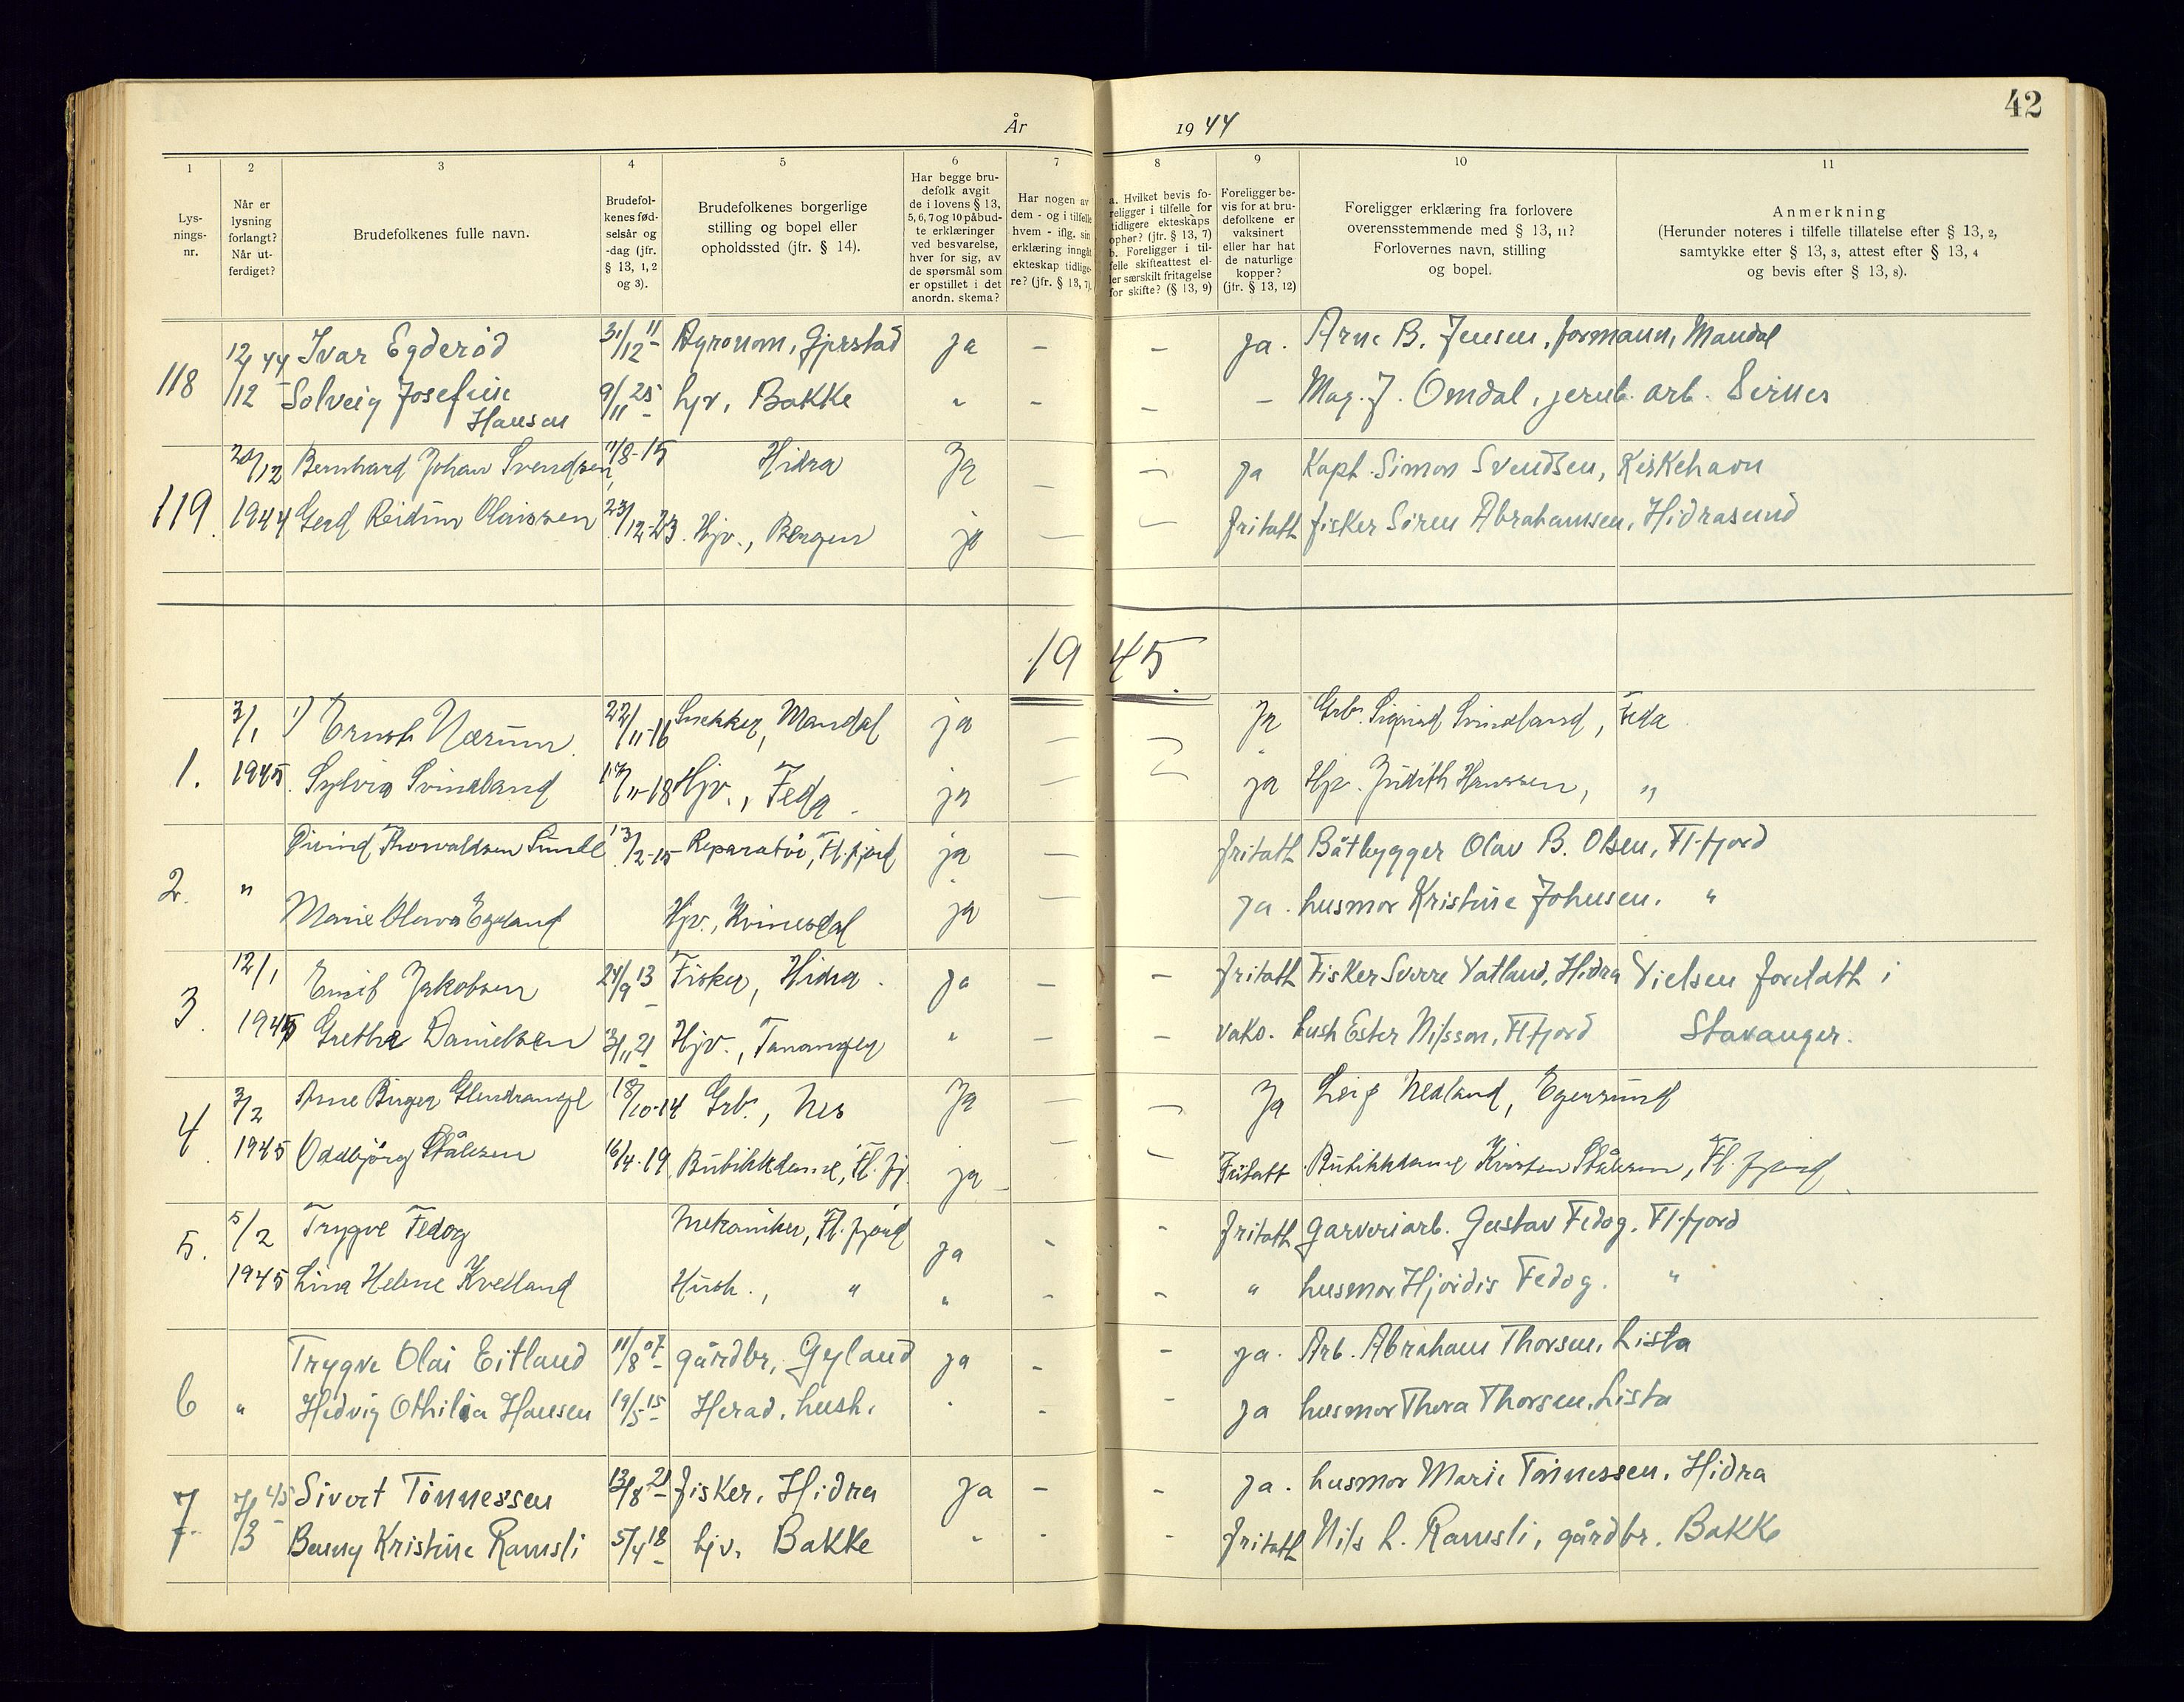 42
År 1944
1 2 3 4 5 6 7 8 9 10 11
Lysningsnr.
Når er lysning forlangt? Når utferdiget?
Brudefolkenes fulle navn.
Brudefolkenes fødselsår og -dag (jfr. § 13, 1, 2 og 3).
Brudefolkenes borgerlige stilling og bopel eller opholdssted (jfr. § 14).
Har begge brudefolk avgit de i lovens § 13, 5, 6, 7 og 10 påbudte erklæringer ved besvarelse, hver for sig, av de spørsmål som er opstillet i det anordn. skema?
Har nogen av dem - og i tilfelle hvem - iflg. sin erklæring inngått ekteskap tidligere? (jfr. § 13, 7)
a. Hvilket bevis foreligger i tilfelle for tidligere ekteskaps ophør? (jfr. § 13, 7) b. Foreligger i tilfelle skifteattest eller særskilt fritagelse for skifte? (§ 13, 9)
Foreligger bevis for at brudefolkene er vaksinert eller har hat de naturlige kopper? (jfr. § 13, 12)
Foreligger erklæring fra forlovere overensstemmende med § 13, 11? Forlovernes navn, stilling og bopel.
Anmerkning (Herunder noteres i tilfelle tillatelse efter § 13, 2, samtykke efter § 13, 3, attest efter § 13, 4 og bevis efter § 13, 8).
118 12/12 44 Ivar Egderød 31/12 11 Agronom, Gjerstad ja - - ja. Arne B. Jensen, formann, Mandal
Solveig Josefine Hansen 9/11 25 hjv, Bakke " - - - Mag. J. Omdal, jernb. arb. Sirnes
119. 20/12 Bernhard Johan Svendsen 11/8-15 Hidra Ja - - ja Kapt. Simon Svendsen, Kirkehavn
1944 Gerd Reidun Olaissen 23/12-23. Hjv., Bergen ja - - fritatt fisker Sören Abrahamsen, Hidrasund
1945
1. 3/1 1) Ernst Nærum 22/11-16 Snekker, Mandal ja - - Ja Grb. Sigurd Svindland, Feda
1945 Sylvia Svindland 17/11-18 Hjv., Feda ja - - ja Hjv. Judith Hanssen, "
2. " Öivind Thorvaldsen Sunde 13/2-15 Reparatör, Fl.fjord ja - fritatt Båtbygger Olav B. Olsen, Fl.fjord
Marie Olava Egeland Hjv., Kvinesdal ja - ja. husmor Kristine Johnsen. "
3. 12/1 Emil Jakobsen 24/9 13 Fisker, Hidra ja - - fritatt Fisker Sverre Vatland, Hidra Vielsen foretatt i
1945 Grethe Danielsen 3/11 21 Hjv., Tananger " - - vaks. hush Ester Nilsson, Flfjord Stavanger.
4. 3/2 Arne Birger Glendrange 18/10-14 Grb., Nes Ja - - Ja Leif Nedland, Egersund
1945 Oddbjörg Stålesen 16/4-19 Butikkdame, Fl.fj. ja - - Fritatt Butikkdame Kirsten Stålesen, Fl.fjord
5. 5/2 Trygve Fedog Mekaniker, Fl.fjord ja - - fritatt Garveriarb. Gustav Fedog, Fl.fjord
1945 Lina Helene Kvelland Hush., " " - - " husmor Hjördis Fedog. "
6 " Trygve Olai Eitland 11/8 07 gårdbr, Gyland ja - - ja. Arb. Abraham Thorsen, Lista
Hedvig Othilia Hansen 19/5 15 Herad, hush. " - - ja husmor Thora Thorsen, Lista
7 7/3 45 Sivert Tönnessen 13/8 21 fisker, Hidra ja - - ja. husmor Marie Tönnessen, Hidra
Benny Kristine Ramsli 5/4 18 hjv, Bakke " - - fritatt Nils L. Ramsli, gårdbr. Bakke